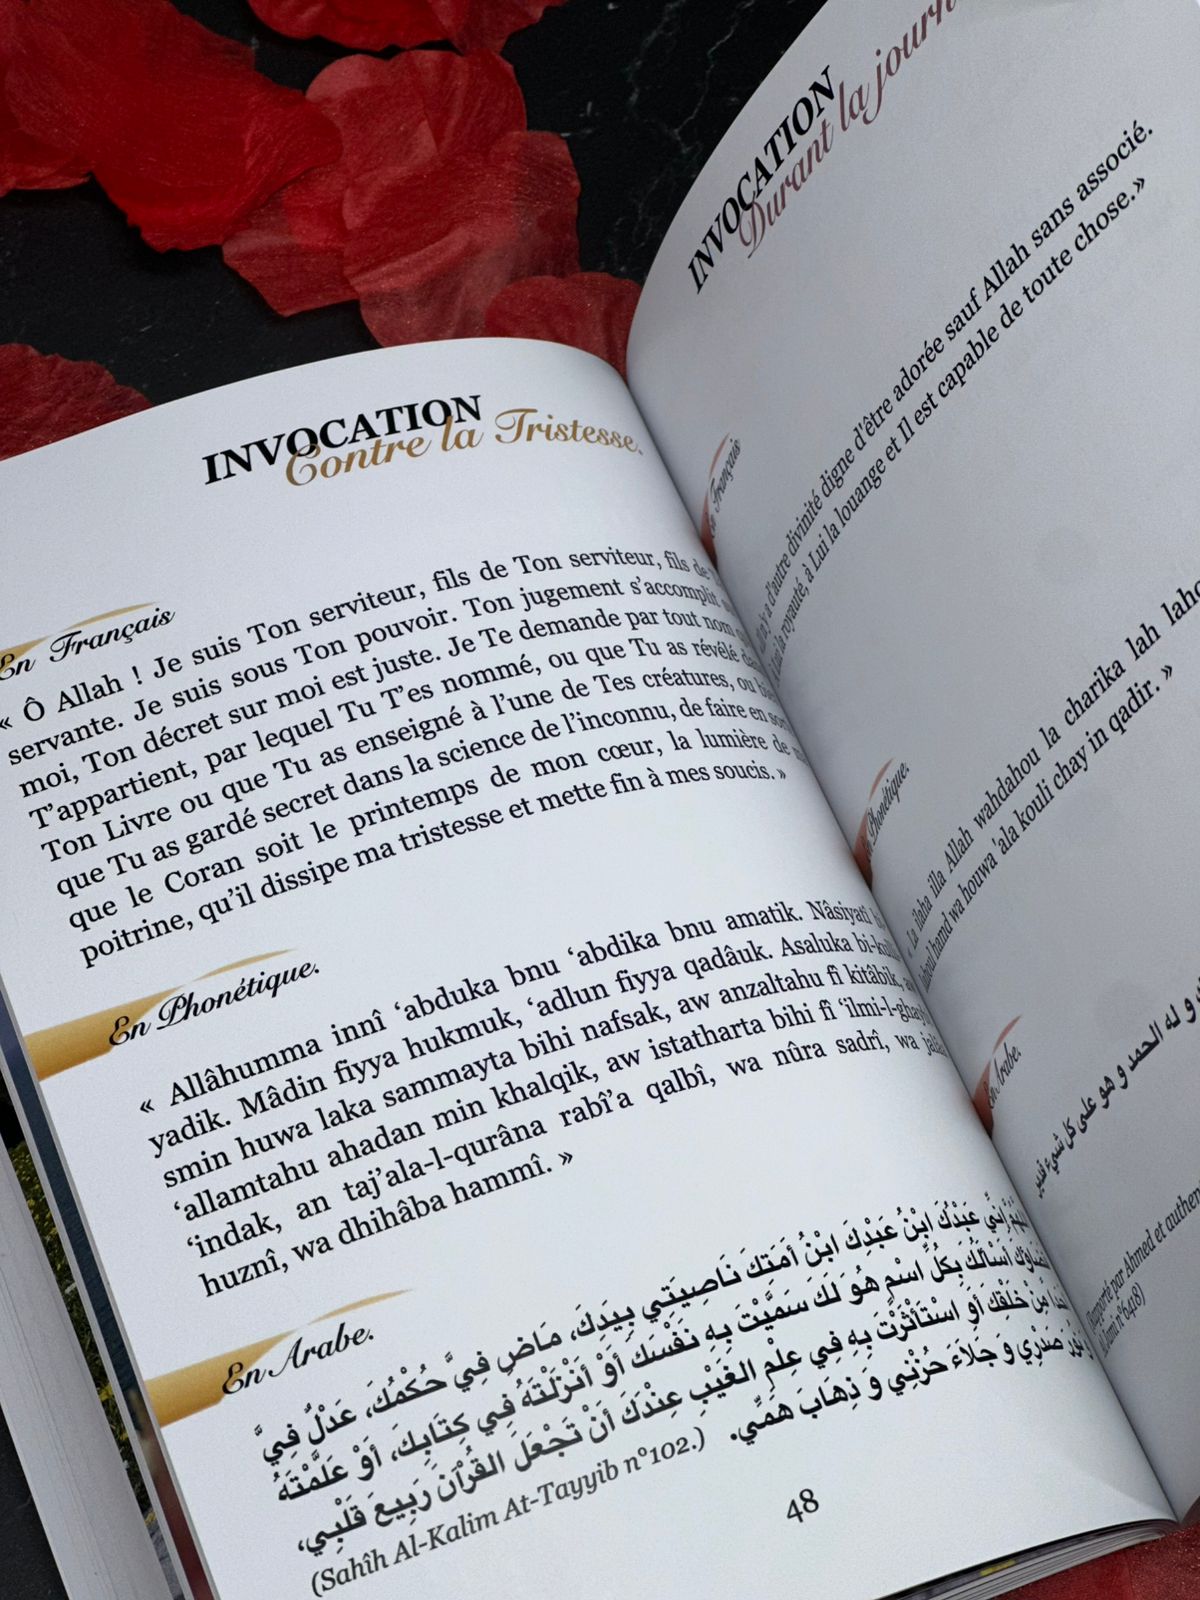 INVOCATION
Contre la Tristesse.
En Français
« Ô Allah ! Je suis Ton serviteur, fils de Ton serviteur, fils de
servante. Je suis sous Ton pouvoir. Ton jugement s’accomplit
moi, Ton décret sur moi est juste. Je Te demande par tout nom
T’appartient, par lequel Tu T’es nommé, ou que Tu as révélé
Ton Livre ou que Tu as enseigné à l’une de Tes créatures, ou
que Tu as gardé secret dans la science de l’inconnu, de faire en
que le Coran soit le printemps de mon cœur, la lumière de
poitrine, qu’il dissipe ma tristesse et mette fin à mes soucis. »
En Phonétique.
« Allâhumma innî ‘abduka bnu ‘abdika bnu amatik. Nâsiyatî
yadik. Mâdin fiyya hukmuk, ‘adlun fiyya qadâuk. Asaluka bi-kulli
smin huwa laka sammayta bihi nafsak, aw anzaltahu fî kitâbik,
‘allamtahu ahadan min khalqik, aw istatharta bihi fî ‘ilmi-l-ghay
‘indak, an taj’ala-l-qurâna rabî’a qalbî, wa nûra sadrî, wa
huznî, wa dhihâba hammî. »
En Arabe.
إِنِّي عَبْدُكَ ابْنُ عَبْدِكَ ابْنُ أَمَتِكَ نَاصِيَتِي بِيَدِكَ، مَاضٍ فِيَّ حُكْمُكَ، عَدْلٌ فِيَّ
أَسْأَلُكَ بِكُلِّ اسْمٍ هُوَ لَكَ سَمَّيْتَ بِهِ نَفْسَكَ أَوْ أَنْزَلْتَهُ فِي كِتَابِكَ، أَوْ عَلَّمْتَهُ
مِنْ خَلْقِكَ أَوِ اسْتَأْثَرْتَ بِهِ فِي عِلْمِ الغَيْبِ عِنْدَكَ أَنْ تَجْعَلَ القُرْآنَ رَبِيعَ قَلْبِي،
صَدْرِي وَ جَلَاءَ حُزْنِي وَ ذِهَابَ هَمِّي.
(Sahîh Al-Kalim At-Tayyib n°102.)
48
INVOCATION
Durant la journ
En Français
d'autre divinité digne d'être adorée sauf Allah sans associé.
la royauté, à Lui la louange et Il est capable de toute chose.»
En Phonétique.
« La ilaha illa Allah wahdahou la charika lah laho
lahoul hamd wa houwa 'ala kouli chay in qadir. »
En Arabe.
و له الحمد و هو على كل شيء قدير
(Rapporté par Ahmed et authen
n°6418)